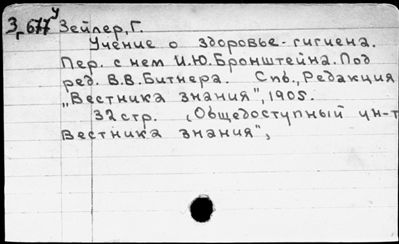 У
3,677 Зейлер, Г.
Учение о здоровье-гигиена.
Пер. с нем И.Ю.Бронштейна. Под
ред. В.В.Битнера. Спб., Редакция
„Вестника знания", 1905.
32 стр. (Общедоступный ун-т
Вестника знания",